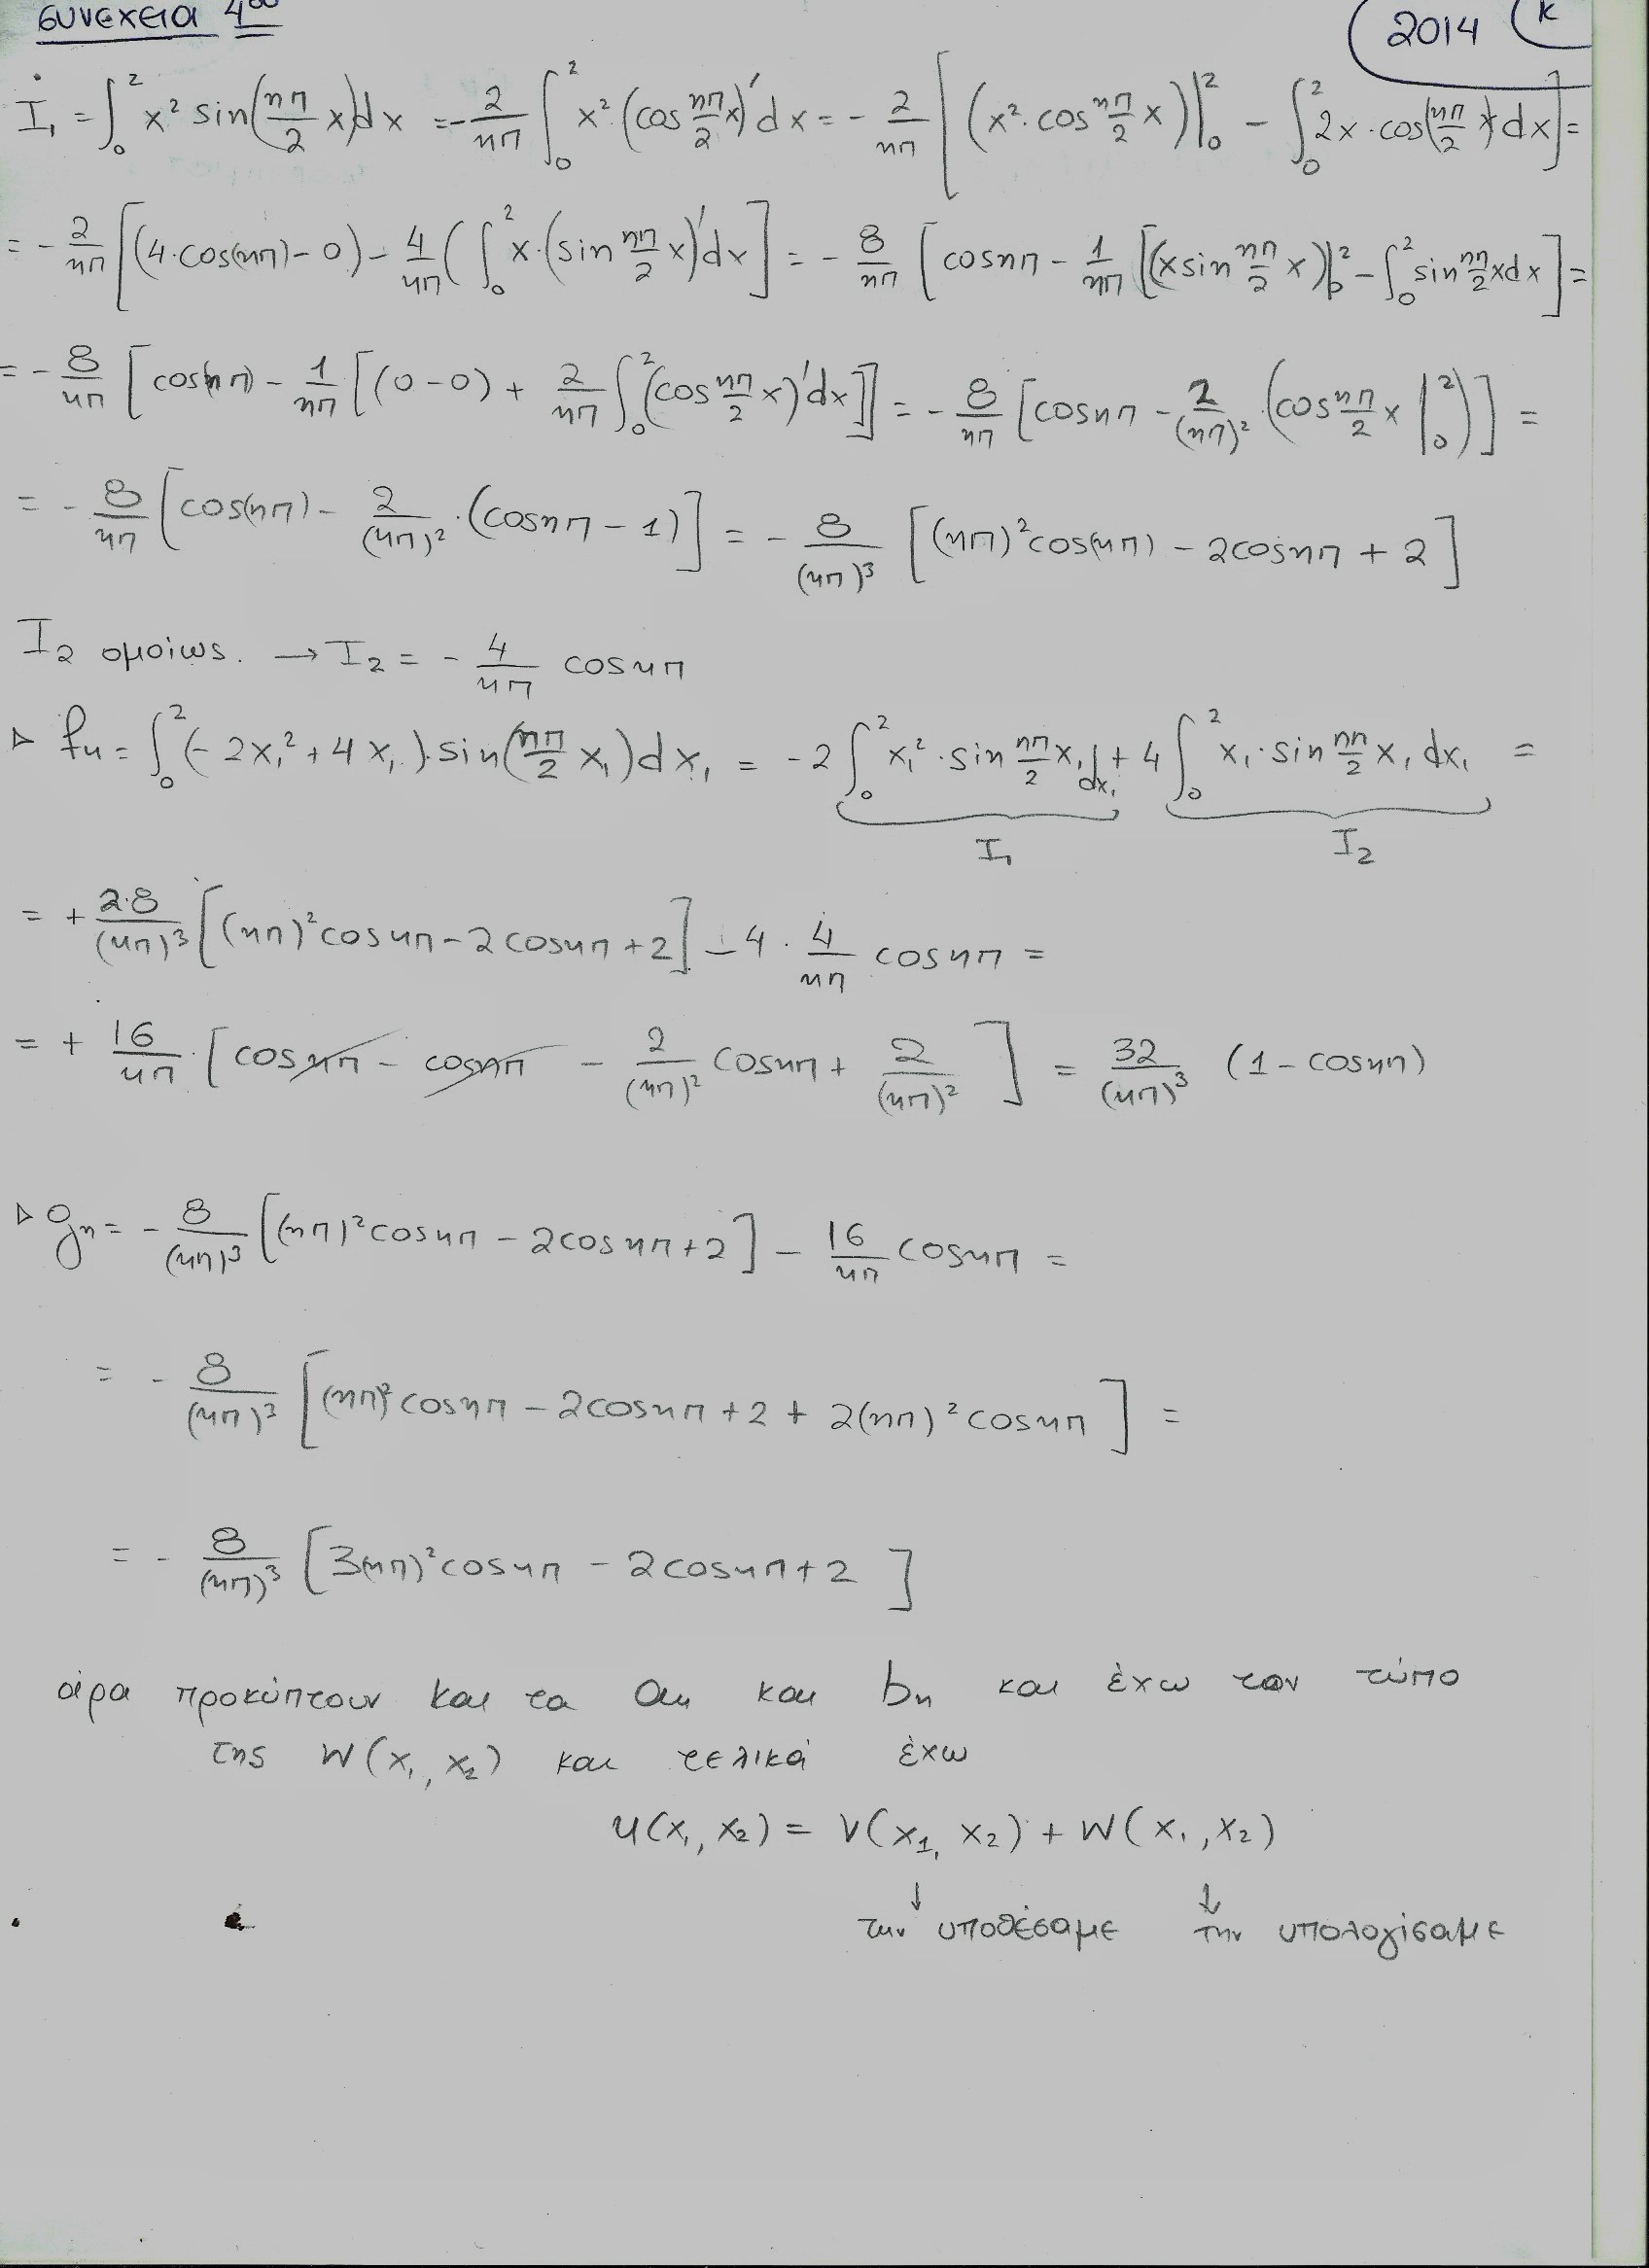 συνεχεια 4ου
2014 K
I₁ = ∫₀² x² sin(nπ/2 x)dx = -2/nπ ∫₀² x²·(cos nπ/2 x)' dx = - 2/nπ [(x²·cos nπ/2 x)|₀² - ∫₀² 2x·cos(nπ/2 x)dx] =
= - 2/nπ [(4·cos(nπ) - 0) - 4/nπ (∫₀² x·(sin nπ/2 x)'dx] = - 8/nπ [cosnπ - 1/nπ [(x sin nπ/2 x)|₀² - ∫₀² sin nπ/2 x dx] =
= - 8/nπ [cos(nπ) - 1/nπ [(0-0) + 2/nπ ∫₀² (cos nπ/2 x)'dx]] = - 8/nπ [cosnπ - 2/(nπ)² · (cos nπ/2 x |₀²)] =
= - 8/nπ [cos(nπ) - 2/(nπ)² · (cosnπ - 1)] = - 8/(nπ)³ [(nπ)²cos(nπ) - 2cosnπ + 2]
I₂ ομοίως. → I₂ = - 4/nπ cosnπ
▷ fn = ∫₀² (-2x₁² + 4x₁)·sin(nπ/2 x₁)dx₁ = -2 ∫₀² x₁²·sin nπ/2 x₁ dx₁ + 4 ∫₀² x₁·sin nπ/2 x₁ dx₁ =
I₁ I₂
= + 2·8/(nπ)³ [(nπ)²cosnπ - 2cosnπ + 2] - 4 · 4/nπ cosnπ =
= + 16/nπ · [cosnπ - cosnπ - 2/(nπ)² cosnπ + 2/(nπ)²] = 32/(nπ)³ (1 - cosnπ)
▷ gn = - 8/(nπ)³ [(nπ)²cosnπ - 2cosnπ + 2] - 16/nπ cosnπ =
= - 8/(nπ)³ [(nπ)²cosnπ - 2cosnπ + 2 + 2(nπ)²cosnπ] =
= - 8/(nπ)³ [3(nπ)²cosnπ - 2cosnπ + 2]
άρα προκύπτουν και τα an και bn και έχω τον τύπο
της W(x₁, x₂) και τελικά έχω
u(x₁, x₂) = V(x₁, x₂) + W(x₁, x₂)
↓ ↓
την υποθέσαμε την υπολογίσαμε